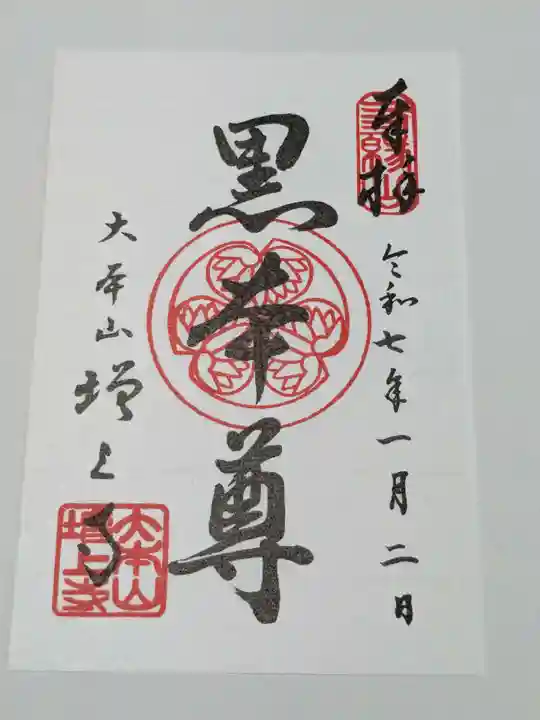 奉拝
令和七年一月二日
黒本尊
大本山増上寺
大本山
増上寺